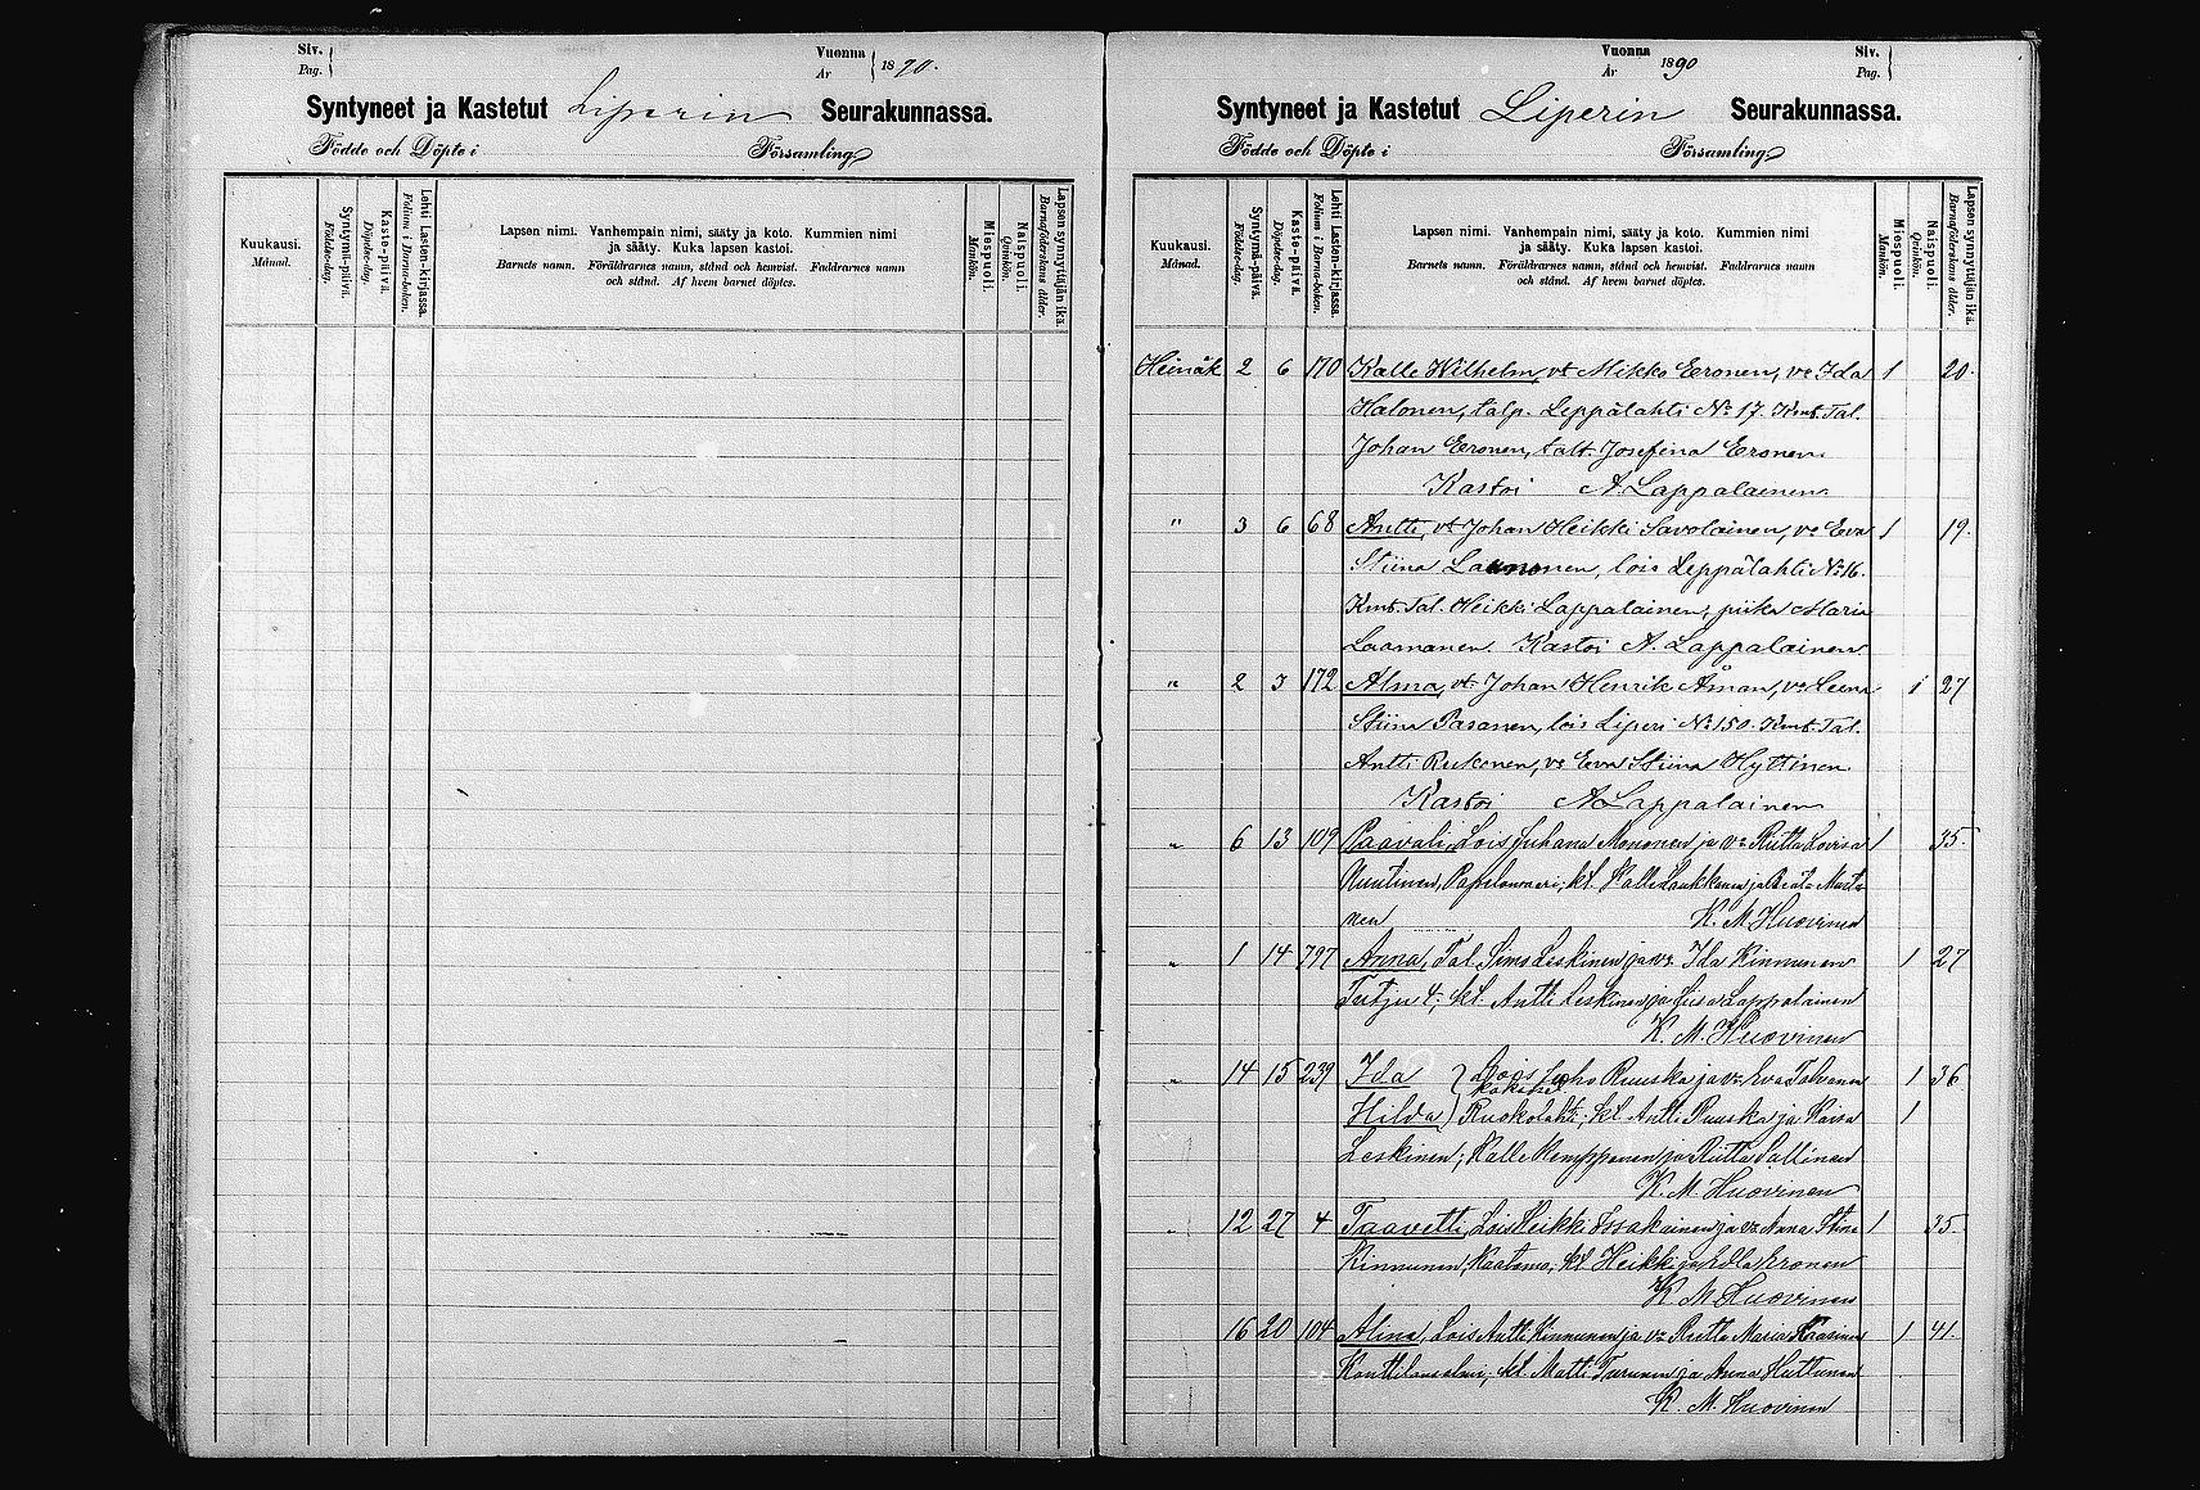 Siv.
Pag.
Vuonna
År
1890.
Syntyneet ja Kastetut Liperin Seurakunnassa.
Födde och Döpte i Församling
Kuukausi.
Månad.
Syntymä-päivä.
Födelse-dag.
Kaste-päivä.
Döpelse-dag.
Lehti Lasten-kirjassa.
Folium i Barna-boken.
Lapsen nimi. Vanhempain nimi, sääty ja koto. Kummien nimi
ja sääty. Kuka lapsen kastoi.
Barnets namn. Föräldrarnes namn, stånd och hemvist. Faddrarnes namn
och stånd. Af hvem barnet döptes.
Miespuoli.
Mankön.
Naispuoli.
Qvinkön.
Lapsen synnyttäjän ikä.
Barnaföderskans ålder.
Vuonna
År
1890
Siv.
Pag.
Syntyneet ja Kastetut Liperin Seurakunnassa.
Födde och Döpte i Församling
Kuukausi.
Månad.
Syntymä-päivä.
Födelse-dag.
Kaste-päivä.
Döpelse-dag.
Lehti Lasten-kirjassa.
Folium i Barna-boken.
Lapsen nimi. Vanhempain nimi, sääty ja koto. Kummien nimi
ja sääty. Kuka lapsen kastoi.
Barnets namn. Föräldrarnes namn, stånd och hemvist. Faddrarnes namn
och stånd. Af hvem barnet döptes.
Miespuoli.
Mankön.
Naispuoli.
Qvinkön.
Lapsen synnyttäjän ikä.
Barnaföderskans ålder.
Heinäk 2 6 170 Kalle Wilhelm, vt Mikko Eronen, vo Ida 1 20.
Halonen, talp. Leppälahti No 17. Kmt. Tal.
Johan Eronen, talt. Josefina Eronen.
Kastoi A. Lappalainen.
" 3 6 68 Antti, vt Johan Heikki Savolainen, vo Eeva 1 19.
Stiina Laamonen, lois Leppälahti No 16.
Kmt. Tal. Heikki Lappalainen, piika Maria
Laamanen. Kastoi A. Lappalainen.
" 2 3 172 Alma, vt. Johan Henrik Åman, vo Leena 1 27
Stiina Pasanen, lois Liperi No 150. Kmt. Tal.
Antti Rukonen, vo Eeva Stiina Hyttinen.
Kastoi A Lappalainen
" 6 13 109 Paavali, Lois Juhana Mononen ja vo Riitta Lovisa 1 35.
Nuutinen, kl. Kalle Laukkanen ja Beata Musto-
nen K. M. Huovinen
" 1 14 797 Anna, Tal. Simo Leskinen ja vo Ida Kinnunen 1 27
Tutju 4; kl. Antti Leskinen ja Liisa Lappalainen
K. M. Huovinen
" 14 15 239 Ida } Lois Juho Ruuska ja vo Eva Tolvanen 1 36
kaksoset
Hilda ) Ruokolahti; kl. Antti Ruuska ja Kaisa 1
Leskinen; Kalle Kemppanen ja Riitta Sallinen
K. M. Huovinen
" 12 27 4 Taavetti, Lois Heikki Issakainen ja vo Anna Stina 1 35.
Kinnunen, Kaatamo; kl. Heikki ja Adla Eronen
K. M Huovinen
16 20 104 Alina, Lois Antti Kinnunen ja vo Riitta Maria 1 41.
Konttilansalmi; kl. Matti Turunen ja Anna Huttunen
K. M. Huovinen